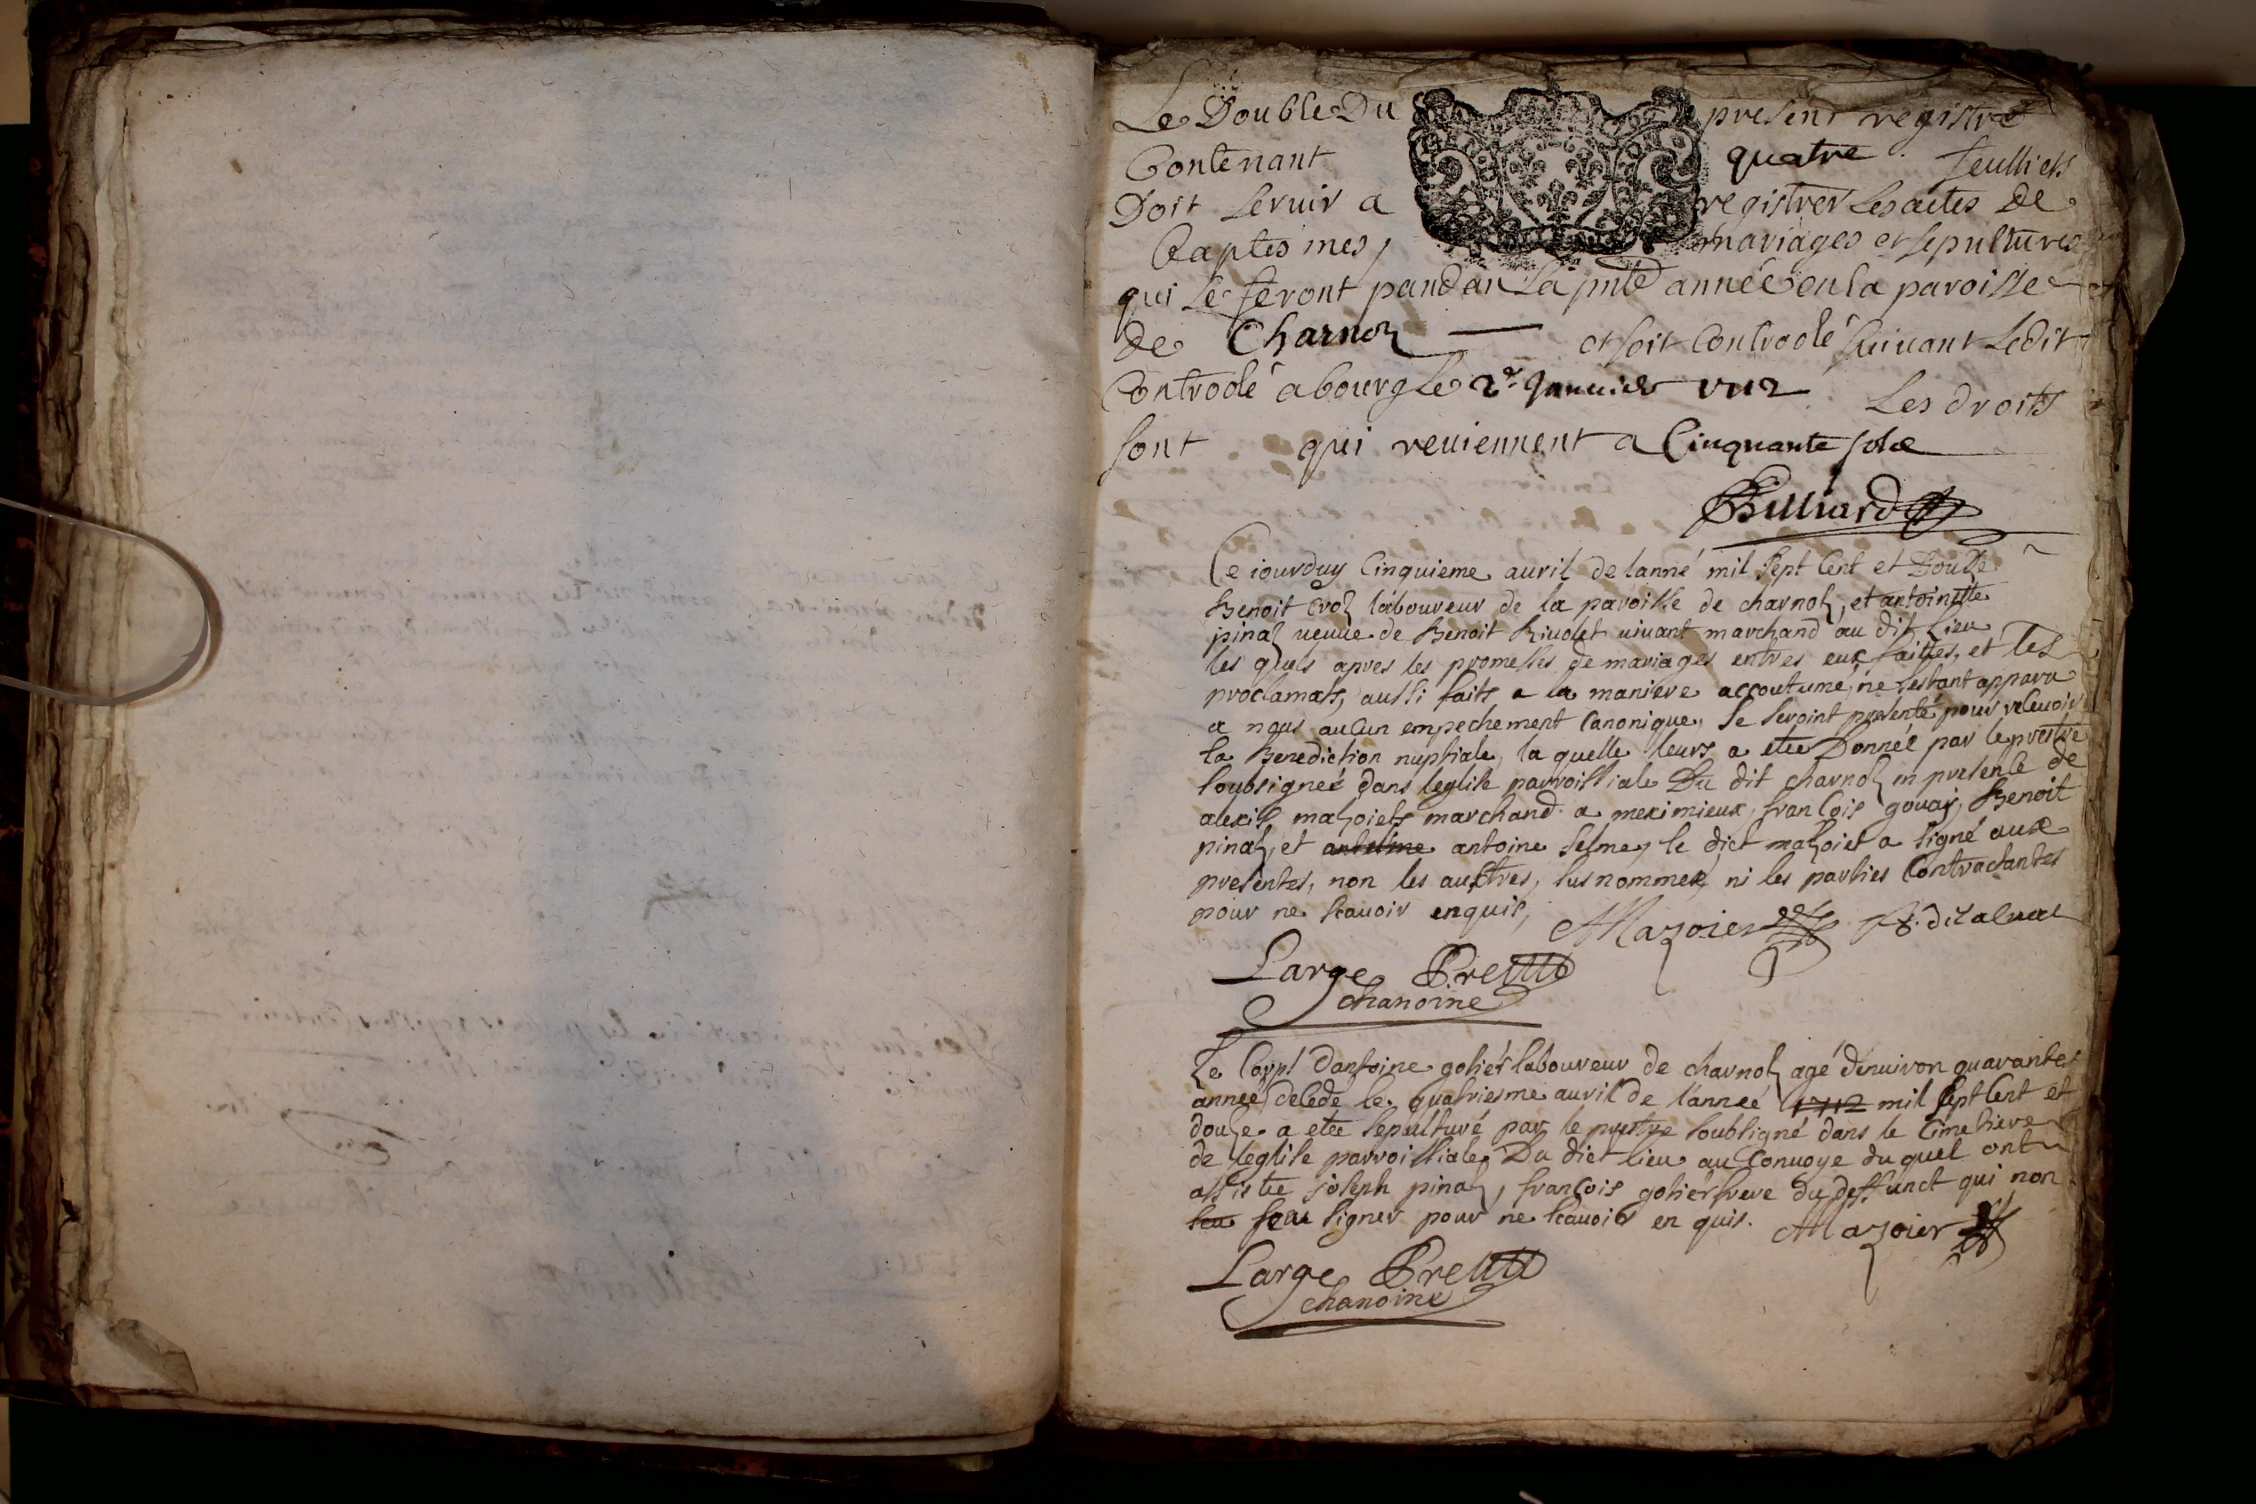 Le Double Du present registre
Contenant quatre feulliets
Doit seruir a registrer les actes de
Baptesmes, mariages et sepultures
qui se feront pandan la pnte année en la paroisse
de Charnoz et soit controolé suiuant Ledit
Controolé a bourg le 2e Januier 1712 Les droits
sont qui reuiennent a Cinquante solz
Billiard
Ce iourduy Cinquieme auril de lanné mil sept Cent et Douze
Benoit Croz laboureur de la paroisse de charnoz, et antoinette
pinaz ueuue de Benoit Riuolet uiuant marchand au dit Lieu
les quels apres les promesses de mariages entres eux faittes, et les
proclamats, aussi faits a la maniere accoutumé, ne sestant apparu
a nous aucun empechement Canonique, se seroint presenté pour receuoir
la Benediction nuptiale, la quelle leurs a etee Donnée par le prestre
soubsigneé dans leglise parroissiale Du dit charnoz in presence de
alexis mazoiets marchand a meximieux, francois gouaj, Benoit
pinaz, et antoine selme, le dict mazoiet a signé aux
presentes, non les auctres, susnommez, ni les parties Contractantes
pour ne scauoir enquis,
Mazoier
Large Pretre
chanoine
Le Corps Dantoine gohier laboureur de charnoz agé denuiron quarantes
anneé decede le quatriesme auril de l'anneé 1712 mil sept Cent et
douze a etee sepulturé par le prestre soubsigné dans le Cimetiere
de leglise parroissiale Du dict lieu au Conuoye du quel ont
assistee joseph pinaz, francois gohier frere du deffunct qui non
sceu signer pour ne scauoir en quis. Mazoier
Large Pretre
chanoine